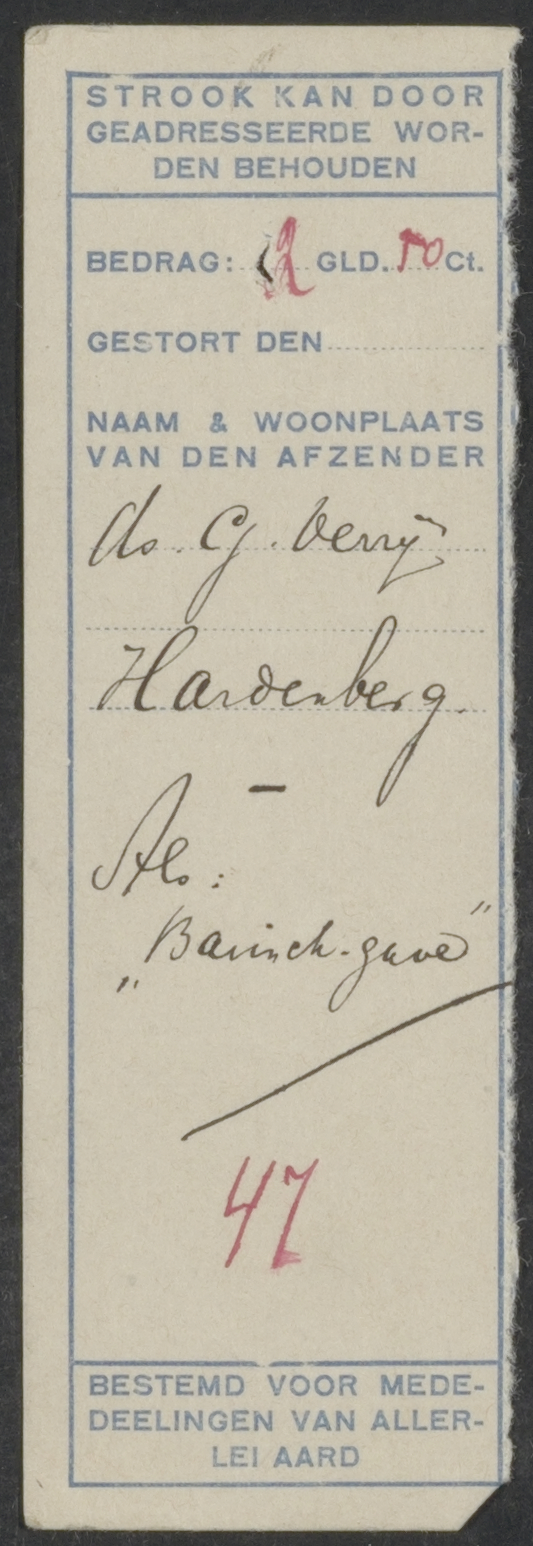 STROOK KAN DOOR
GEADRESSEERDE WOR-
DEN BEHOUDEN
BEDRAG: 2 GLD. 50 Ct.
GESTORT DEN
NAAM & WOONPLAATS
VAN DEN AFZENDER
ds. G. Verrij
Hardenberg.
-
Als:
„Bavinck-gave”
47
BESTEMD VOOR MEDE-
DEELINGEN VAN ALLER-
LEI AARD